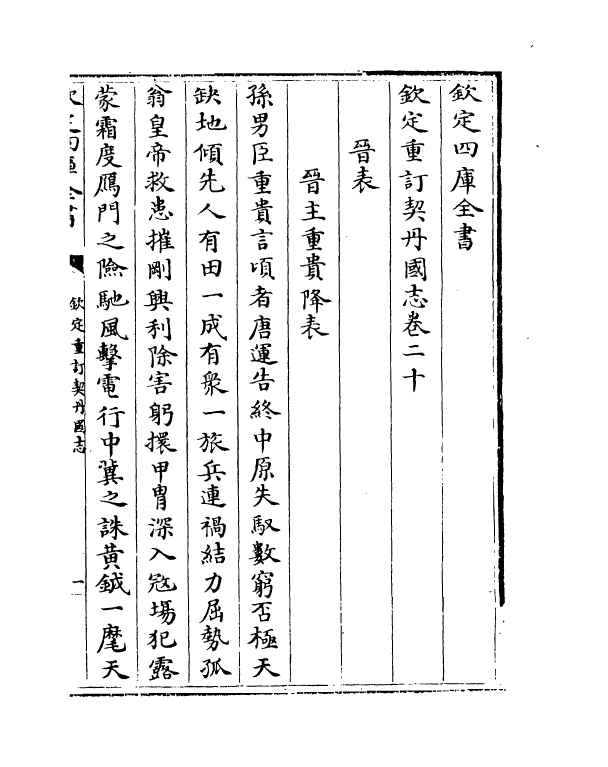 欽定四庫全書
欽定重訂契丹國志卷二十
晉表
晉主重貴降表
孫男臣重貴言頃者唐運告終中原失馭數窮否極天
缺地傾先人有田一成有衆一旅兵連禍結力屈勢孤
翁皇帝救患摧剛興利除害躬擐甲胄深入寇場犯露
蒙霜度鴈門之險馳風擊電行中冀之誅黃鉞一麾天
欽定四庫全書
欽定重訂契丹國志
一